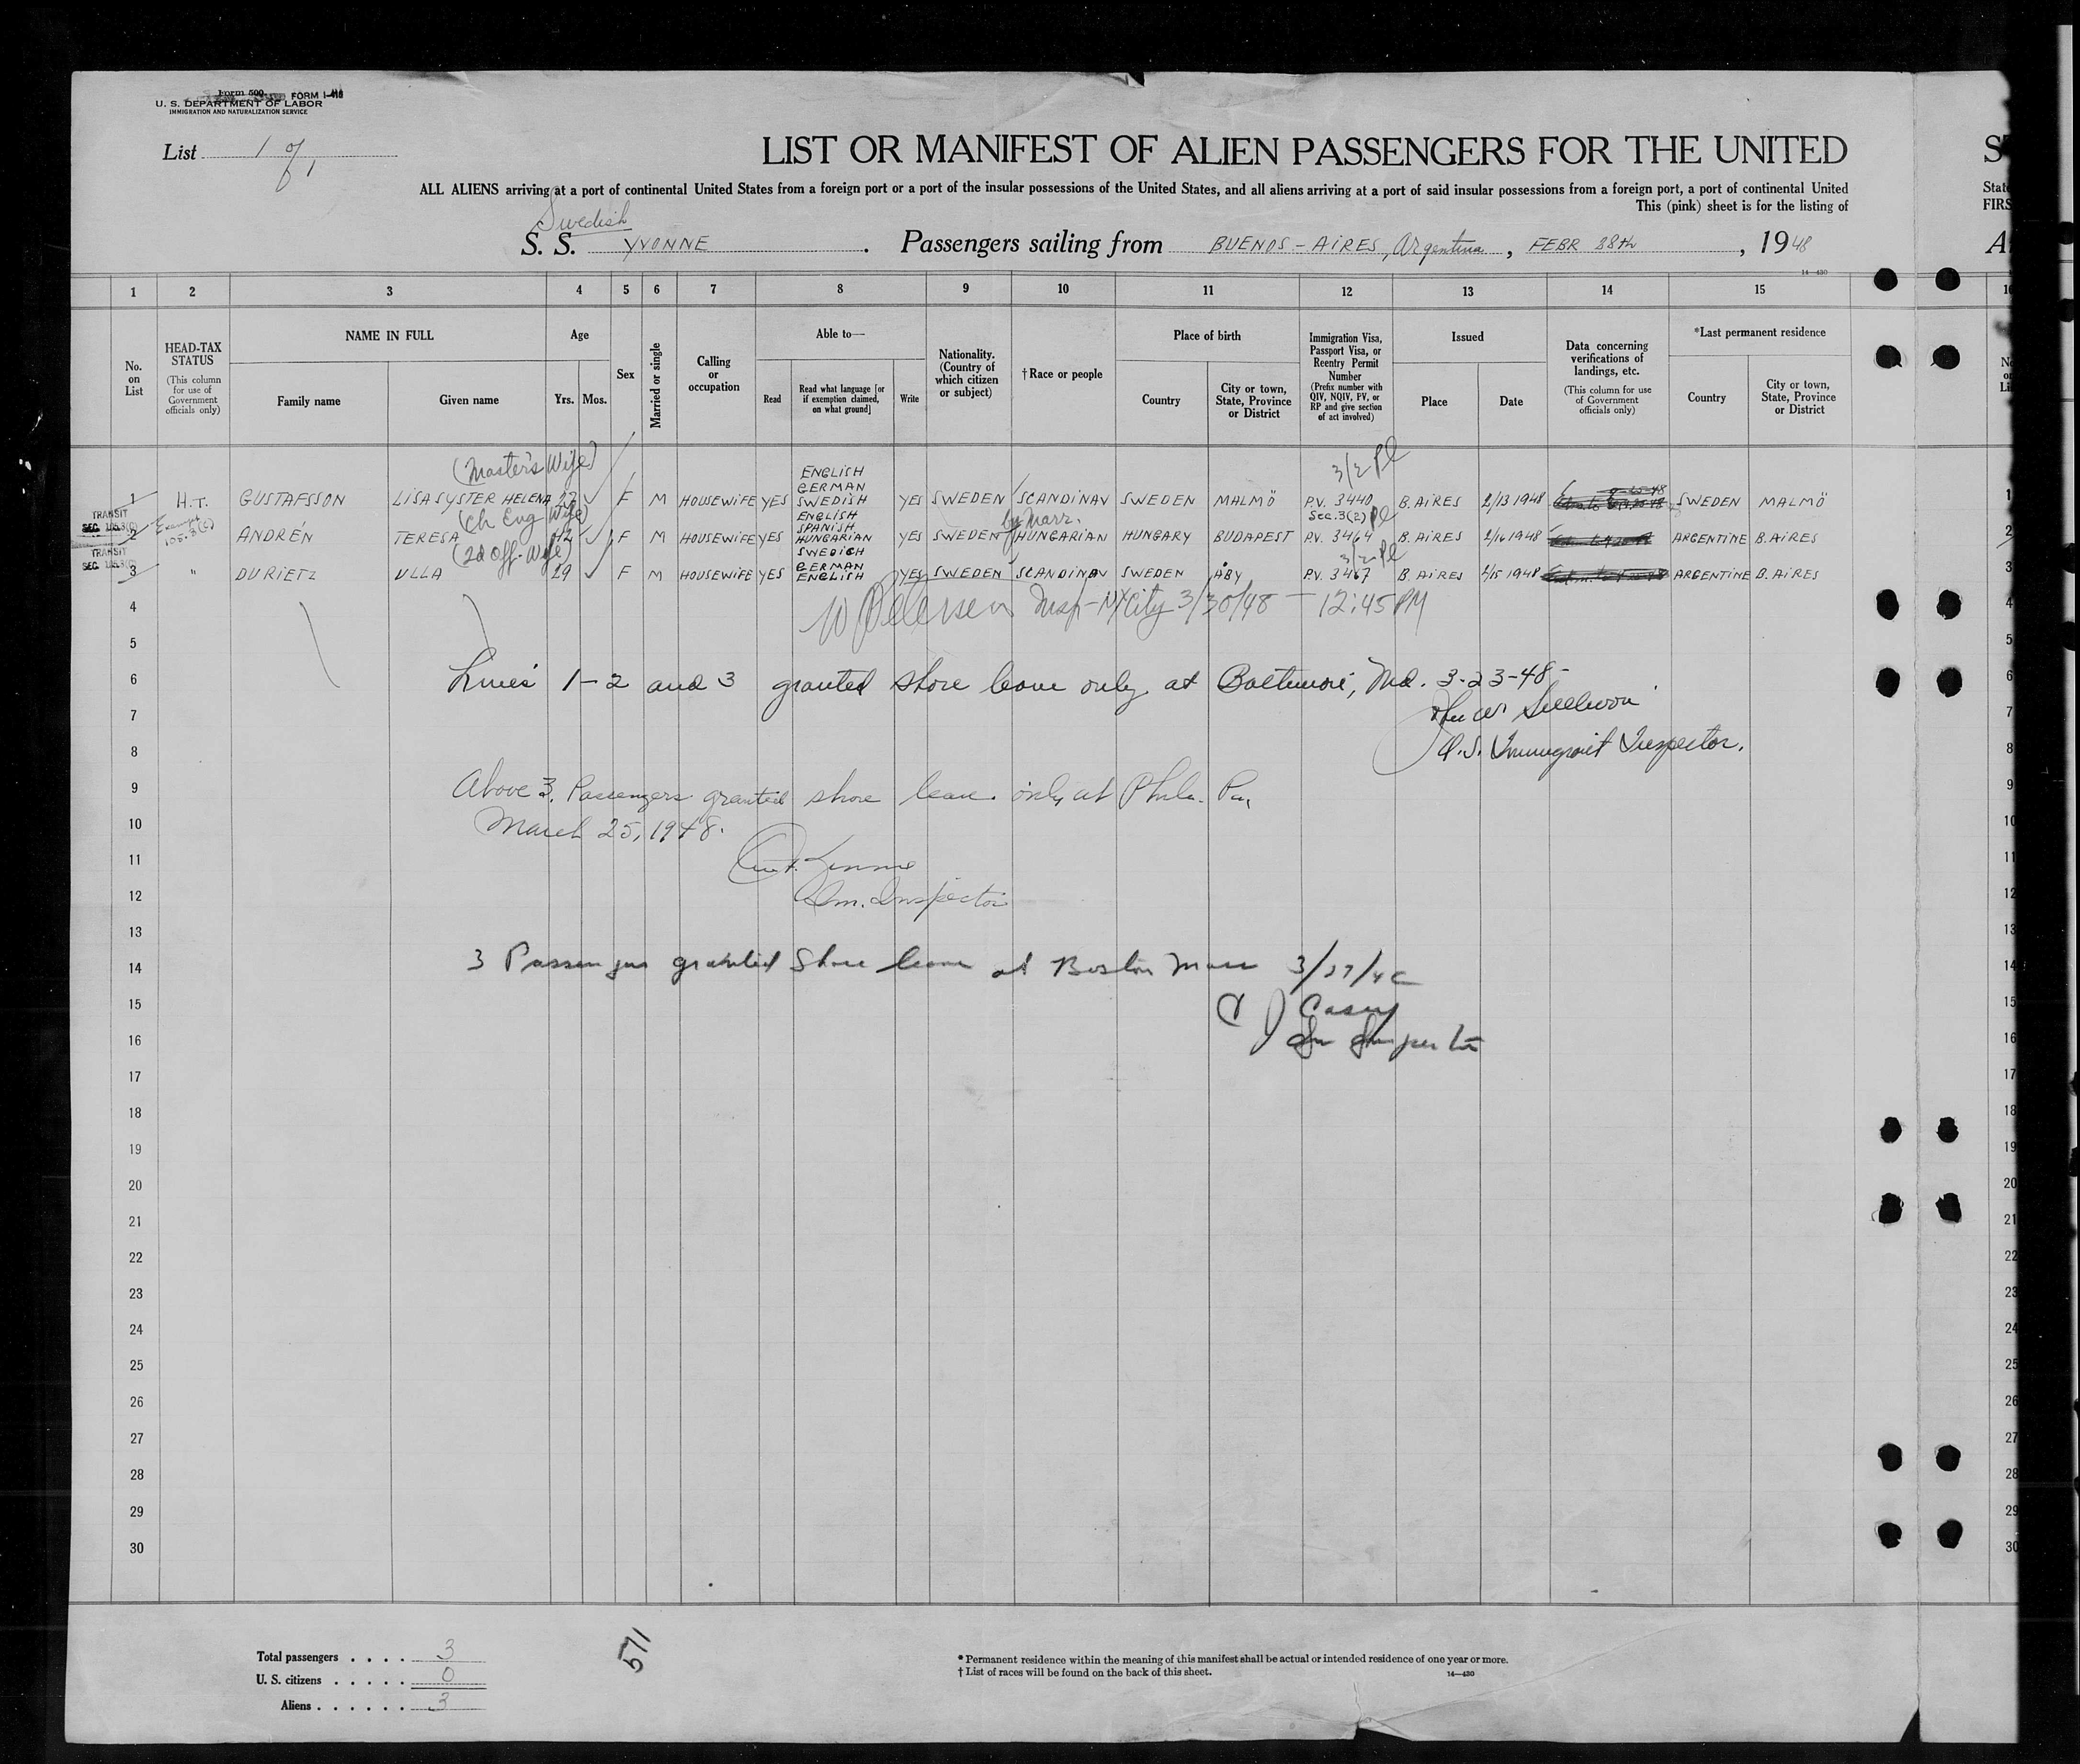 Form 500 FORM I-418
U. S. DEPARTMENT OF LABOR
IMMIGRATION AND NATURALIZATION SERVICE
List 1 of 1
LIST OR MANIFEST OF ALIEN PASSENGERS FOR THE UNITED
ALL ALIENS arriving at a port of continental United States from a foreign port or a port of the insular possessions of the United States, and all aliens arriving at a port of said insular possessions from a foreign port, a port of continental United
This (pink) sheet is for the listing of
Swedish
S. S. YVONNE. Passengers sailing from BUENOS-AIRES, Argentina, FEBR 28th, 1948
14—430
1 2 3 4 5 6 7 8 9 10 11 12 13 14 15
No. on List
HEAD-TAX STATUS (This column for use of Government officials only)
NAME IN FULL
Family name Given name
Age
Yrs. Mos.
Sex
Married or single
Calling or occupation
Able to—
Read Read what language [or if exemption claimed, on what ground] Write
Nationality. (Country of which citizen or subject)
†Race or people
Place of birth
Country City or town, State, Province or District
Immigration Visa, Passport Visa, or Reentry Permit Number (Prefix number with QIV, NQIV, PV, or RP and give section of act involved)
Issued
Place Date
Data concerning verifications of landings, etc. (This column for use of Government officials only)
*Last permanent residence
Country City or town, State, Province or District
(Master's Wife) 3/2 Pl
1 H.T. GUSTAFSSON LISA SYSTER HELENA F M HOUSEWIFE YES ENGLISH GERMAN SWEDISH YES SWEDEN SCANDINAV SWEDEN MALMÖ P.V. 3440 B. AIRES 2/13 1948 SWEDEN MALMÖ
TRANSIT SEC. 105.3(C)
(Ch Eng Wife) by Marr. Sec. 3(2) Pl
2 Exempt 105.3(c) ANDRÉN TERESA 42 F M HOUSEWIFE YES ENGLISH SPANISH HUNGARIAN YES SWEDEN HUNGARIAN HUNGARY BUDAPEST P.V. 3464 B. AIRES 2/16 1948 ARGENTINE B. AIRES
TRANSIT SEC. 105.3(C)
(2d Off. Wife) 3/2 Pl
3 " DU RIETZ ULLA 29 F M HOUSEWIFE YES SWEDISH GERMAN ENGLISH YES SWEDEN SCANDINAV SWEDEN ÅBY P.V. 3467 B. AIRES 2/15 1948 ARGENTINE B. AIRES
4 W Petersen Insp-NYCity 3/30/48 — 12:45 PM
5
6 Lines 1-2 and 3 granted shore leave only at Baltimore, Md. 3-23-48
7
8 U.S. Immigrant Inspector.
9 Above 3 Passengers granted shore leave only at Phila. Pa,
10 March 25, 1948.
11
12 Im. Inspector
13
14 3 Passengers granted Shore leave at Boston Mass
15 Casey
16 Im Inspector
17
18
19
20
21
22
23
24
25
26
27
28
29
30
Total passengers . . . . 3
U. S. citizens . . . . . 0
Aliens . . . . . . 3
571
* Permanent residence within the meaning of this manifest shall be actual or intended residence of one year or more.
† List of races will be found on the back of this sheet. 14—430